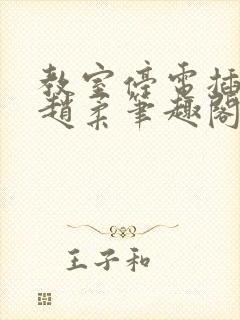 教室停電插
趙柔筆趣閣
王子和